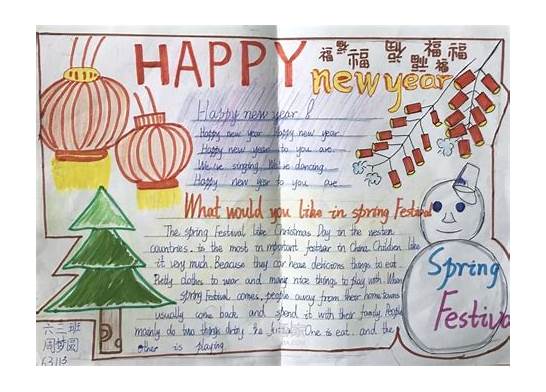 HAPPY
福福福福福福
new year
Happy new year !
Happy new year Happy new year
Happy new year to you are
We are singing We're dancing
Happy new year to you are
What would you like in spring Festival
The spring Festival like Christmas Day in the western
countries. is the most in mportant festivar in China Children like
it very much. Beacuse they can have delicious things to eat.
Betty clothes to wear and many nice things to play with. When
spring festival comes, people away from their home towns
usually come back and spend it with their family. People
mainly do two things during the festival One is eat. and the
other is playing
Spring
Festival
六三班
周梦圆
63113